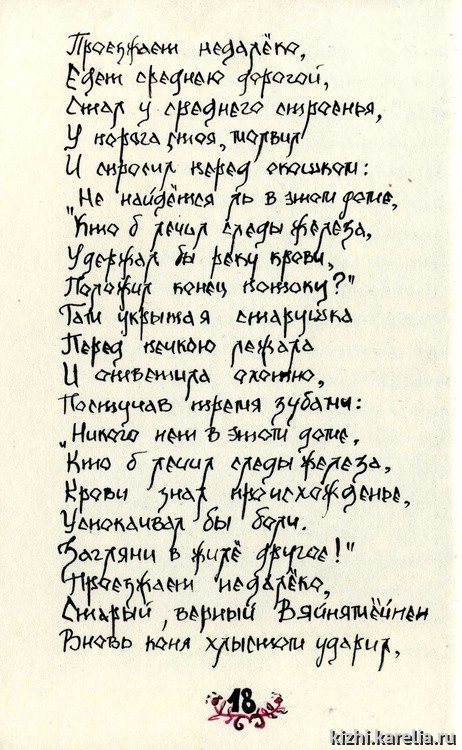 Проезжает недалёко,
Едет среднею дорогой,
Стал у среднего строенья,
У порога стоя, молвил
И спросил перед окошком:
"Не найдётся ль в этом доме,
Кто б лечил следы железа,
Удержал бы реку крови,
Положил конец потоку?"
Там укрытая старушка
Перед печкою лежала
И ответила охотно,
Постучав тремя зубами:
„Никого нет в этом доме,
Кто б лечил следы железа,
Крови знал происхожденье,
Успокаивал бы боли.
Загляни в жильё другое!"
Проезжает недалёко,
Старый, верный Вяйнямёйнен
Вновь коня хлыстом ударил,
18
kizhi.karelia.ru